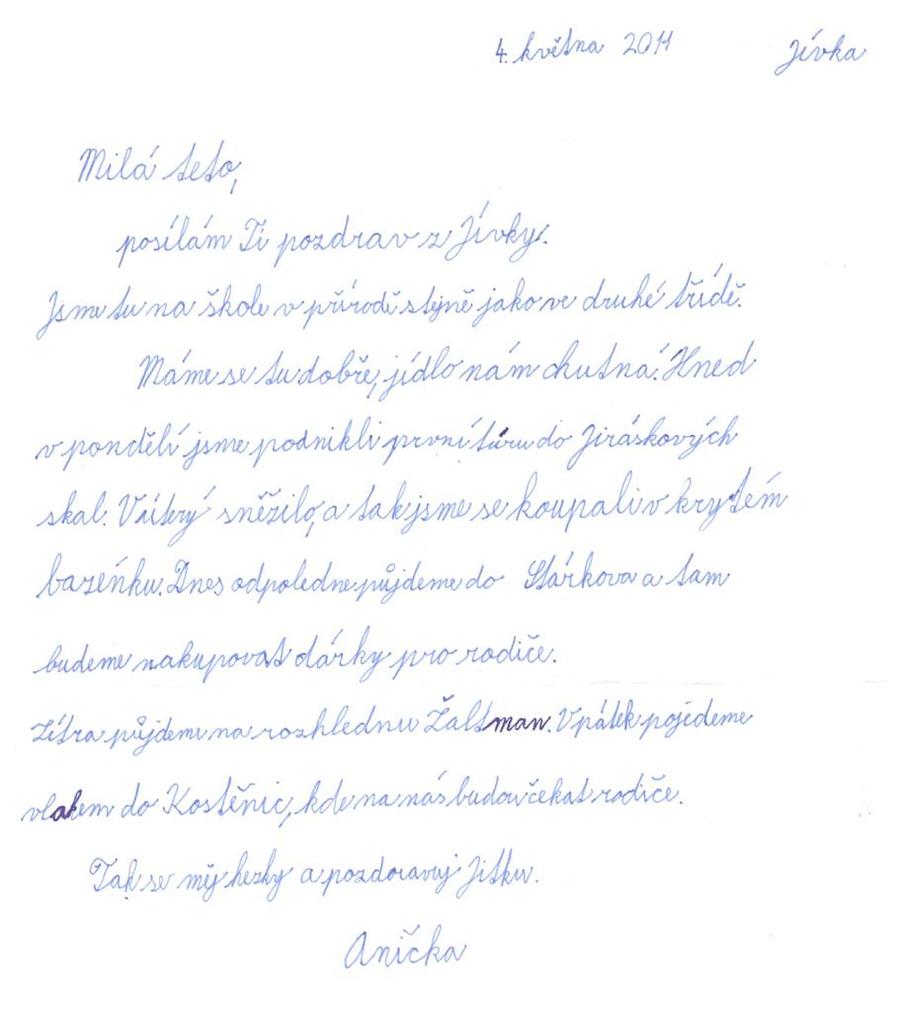 4. května 2011 Jívka
Milá teto,
posílám Ti pozdrav z Jívky.
Jsme tu na škole v přírodě stejně jako ve druhé třídě.
Máme se tu dobře, jídlo nám chutná. Hned
v pondělí jsme podnikli první túru do Jiráskových
skal. V úterý sněžilo, a tak jsme se koupali v krytém
bazénku. Dnes odpoledne půjdeme do Stárkova a tam
budeme nakupovat dárky pro rodiče.
Zítra půjdeme na rozhlednu Žaltman. V pátek pojedeme
vlakem do Kostěnic, kde na nás budou čekat rodiče.
Tak se měj hezky a pozdravuj Jitku.
Anička